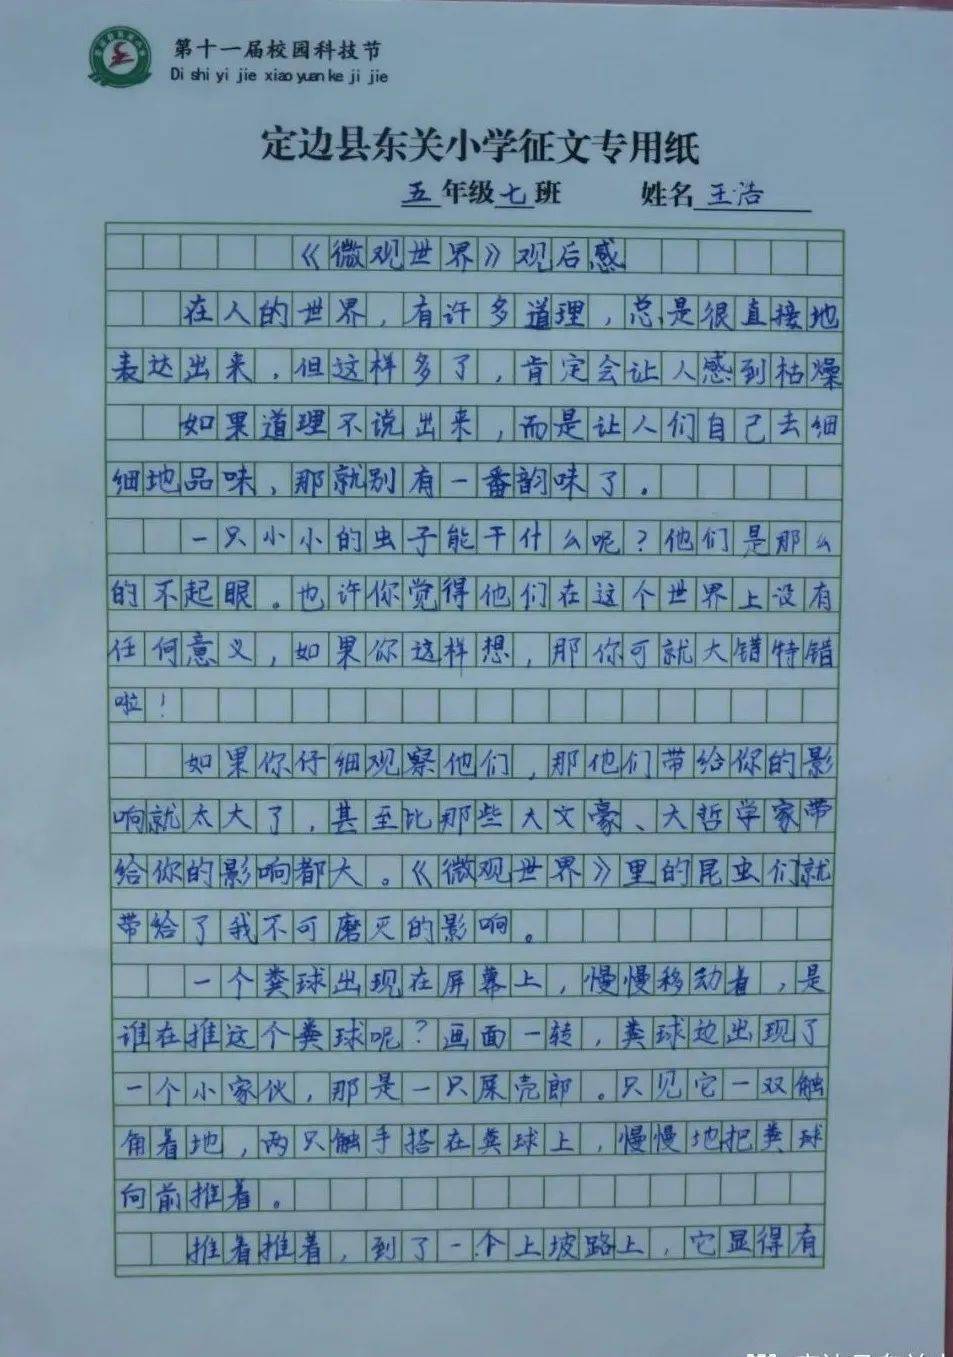 第十一届校园科技节
Di shi yi jie xiao yuan ke ji jie
定边县东关小学征文专用纸
五年级七班 姓名王浩
《微观世界》观后感
在人的世界，有许多道理，总是很直接地
表达出来，但这样多了，肯定会让人感到枯燥
如果道理不说出来，而是让人们自己去细
细地品味，那就别有一番韵味了。
一只小小的虫子能干什么呢？他们是那么
的不起眼。也许你觉得他们在这个世界上没有
任何意义，如果你这样想，那你可就大错特错
啦！
如果你仔细观察他们，那他们带给你的影
响就太大了，甚至比那些大文豪、大哲学家带
给你的影响都大。《微观世界》里的昆虫们就
带给了我不可磨灭的影响。
一个粪球出现在屏幕上，慢慢移动着，是
谁在推这个粪球呢？画面一转，粪球边出现了
一个小家伙，那是一只屎壳郎。只见它一双触
角着地，两只触手搭在粪球上，慢慢地把粪球
向前推着。
推着推着，到了一个上坡路上，它显得有